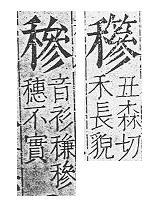 穇
丑森切
禾長貌
穇
音衫稴穇
穗不實